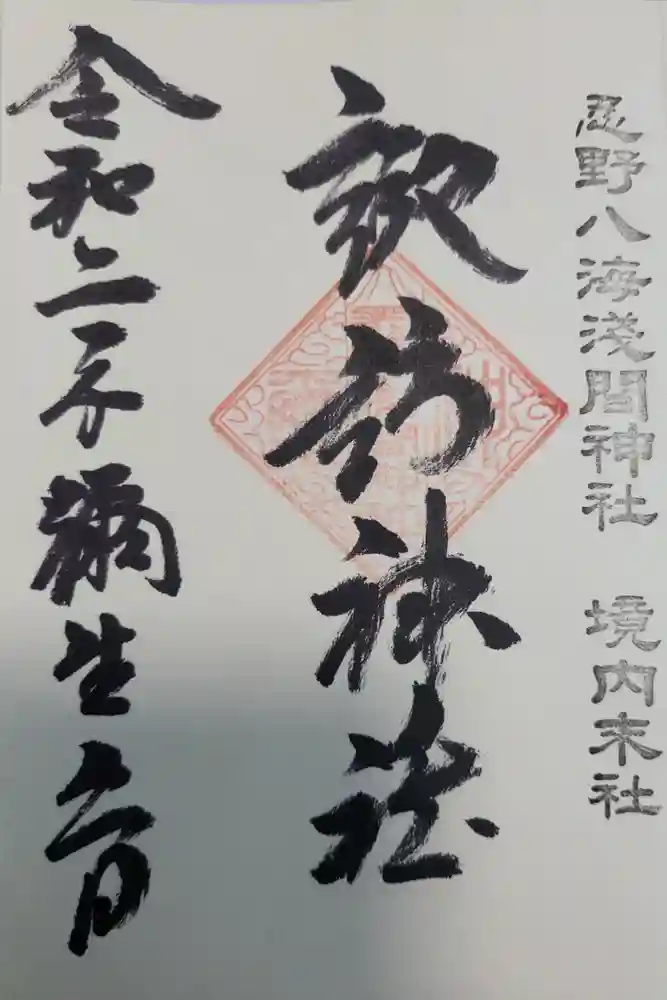 忍野八海淺間神社　境内末社
諏訪神社
令和二年彌生六日